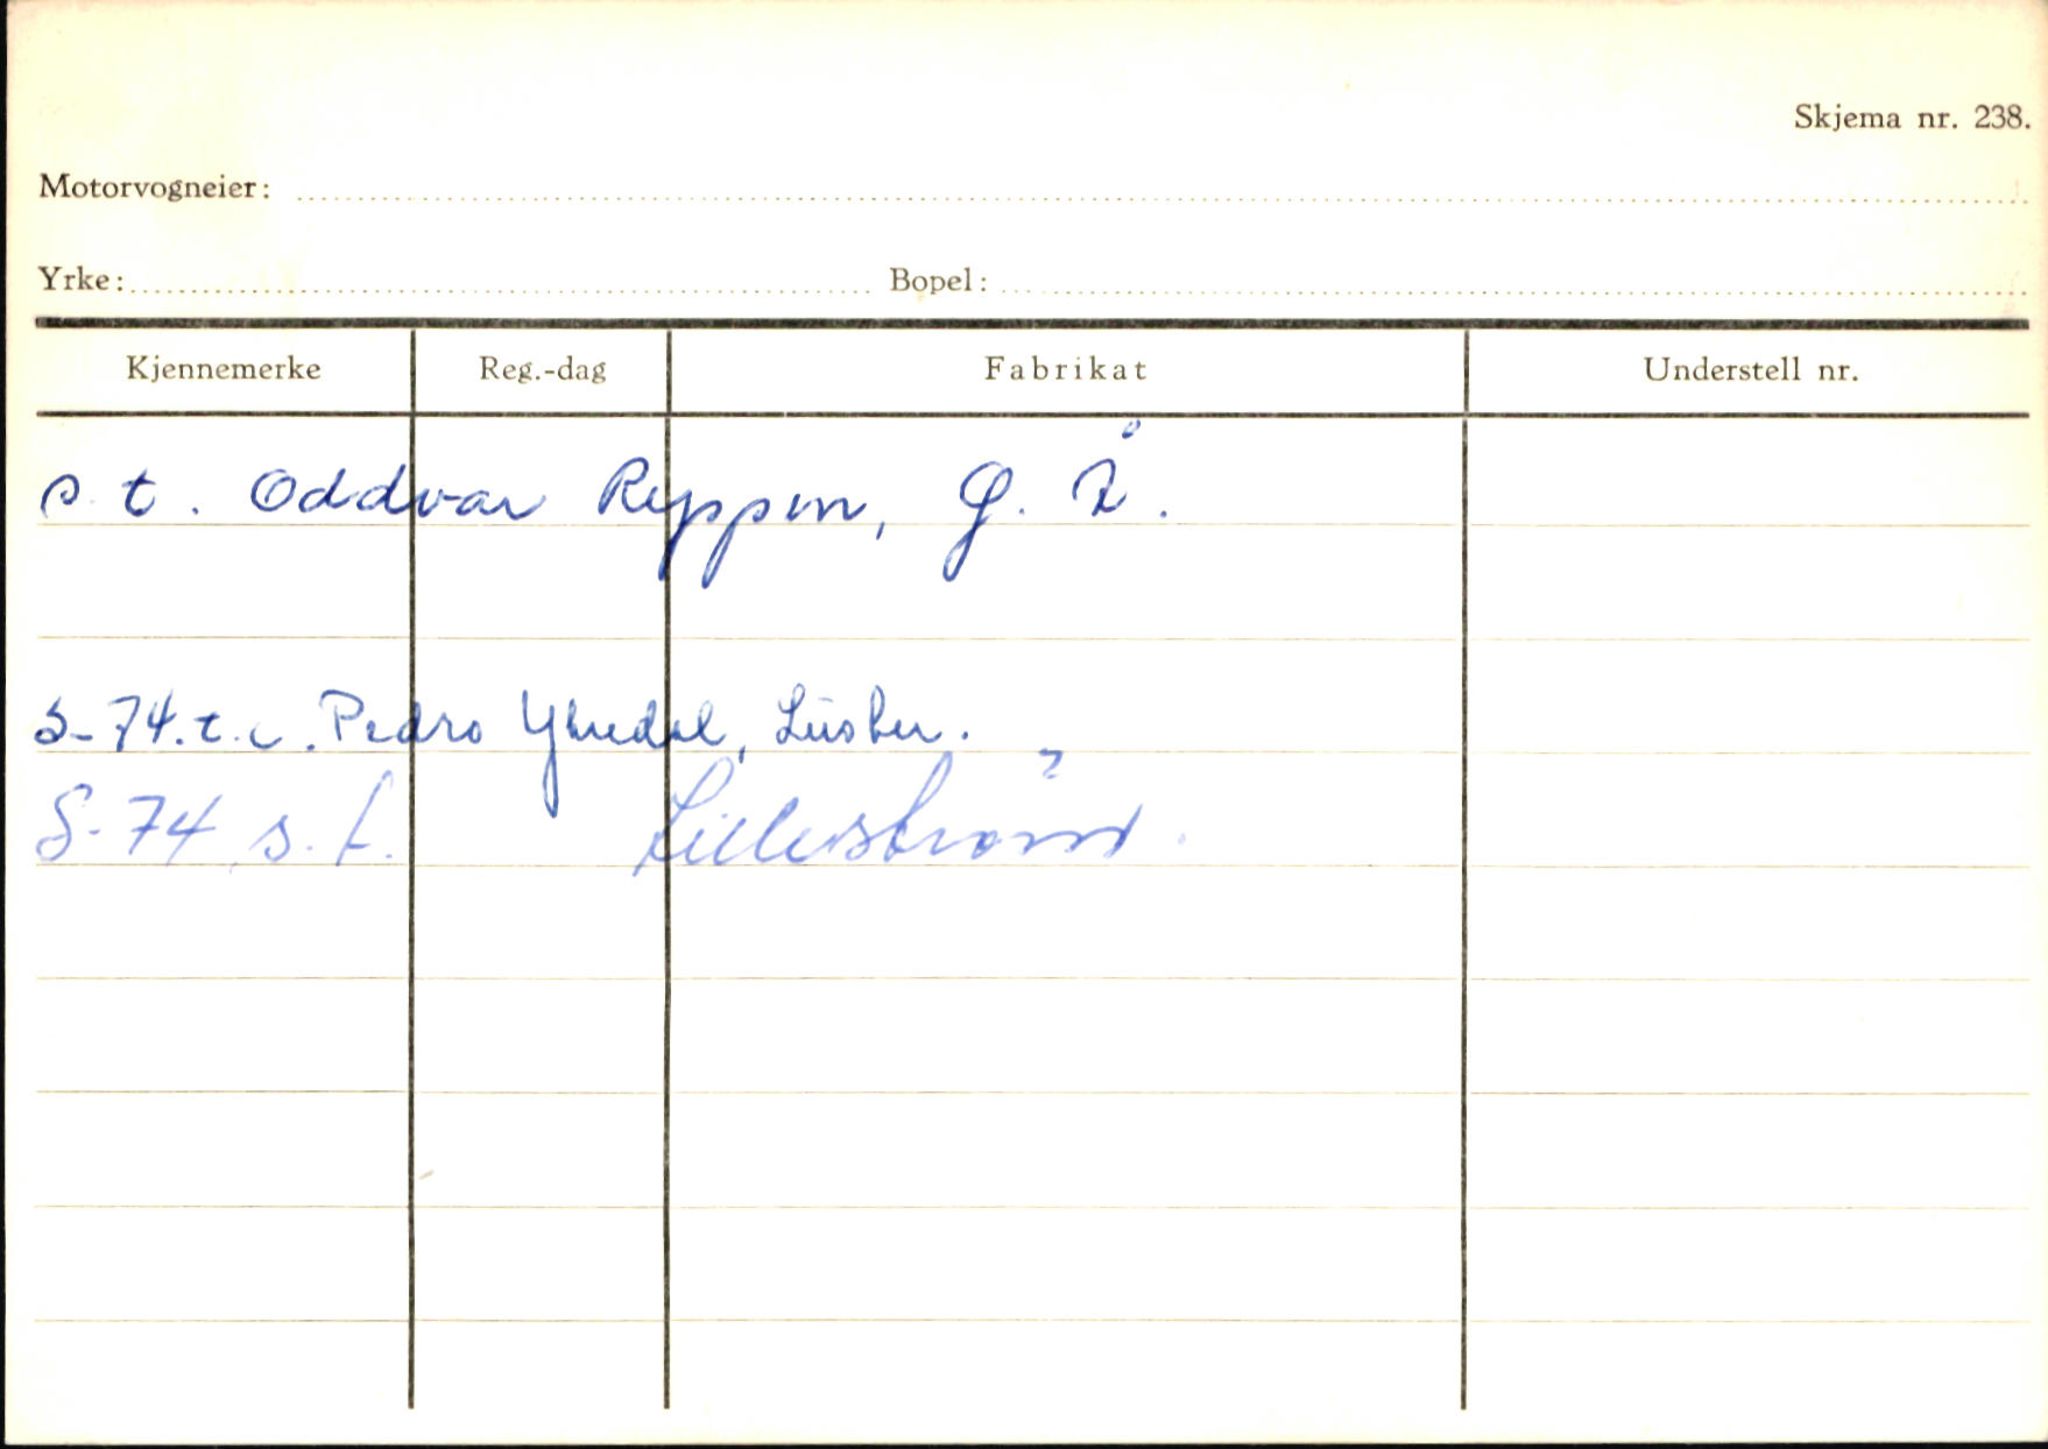 Skjema nr. 238.
Motorvogneier:
Yrke: Bopel:
Kjennemerke Reg.-dag Fabrikat Understell nr.
s. t. Oddvar Ryppen,
S-74. t. Pedro Luster.
S-74 s. t. Lillestrøm.